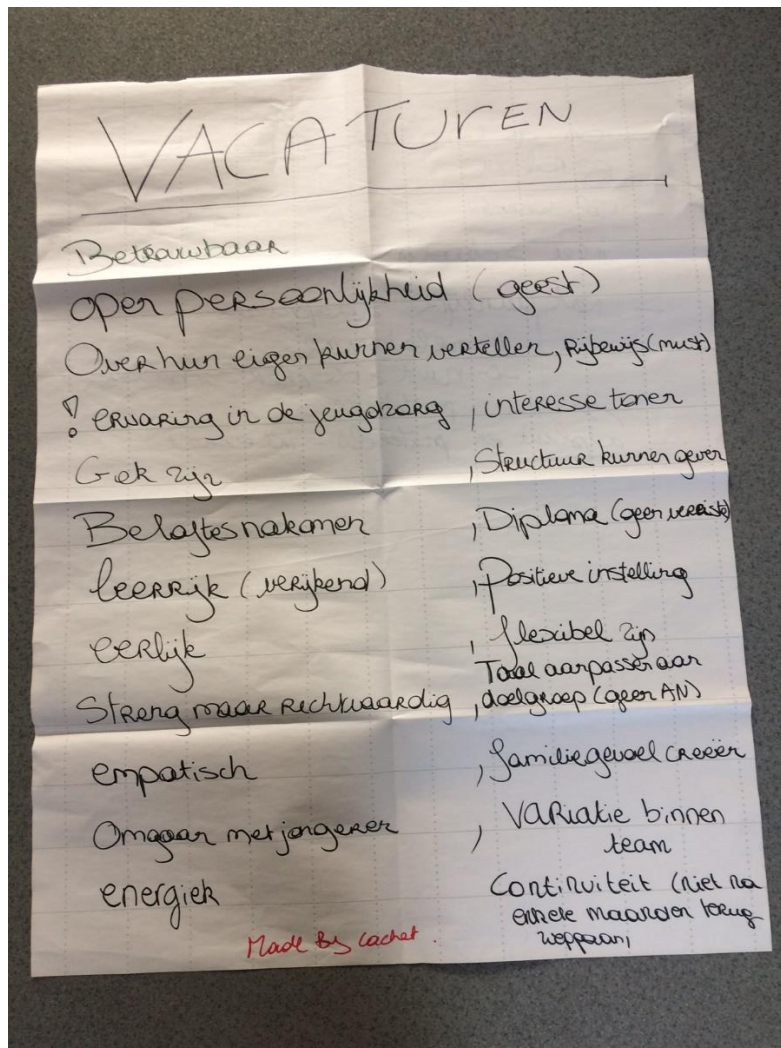 VACATUREN
Betrouwbaar
open persoonlijkheid (geest)
Over hun eigen kunnen vertellen, Rijbewijs (must)
! ervaring in de jeugdzorg , interesse tonen
Gek zijn , Structuur kunnen geven
Beloftes nakomen , Diploma (geen vereiste)
leerrijk (verijkend) , Positieve instelling
eerlijk , flexibel zijn
Taal aanpassen aan
Streng maar rechtvaardig , doelgroep (geen AN)
empatisch , familiegevoel creeër
Omgaan met jongeren , Variatie binnen
team
energiek Continuiteit (niet na
enkele maanden terug
weggaan)
Made By Cachet.